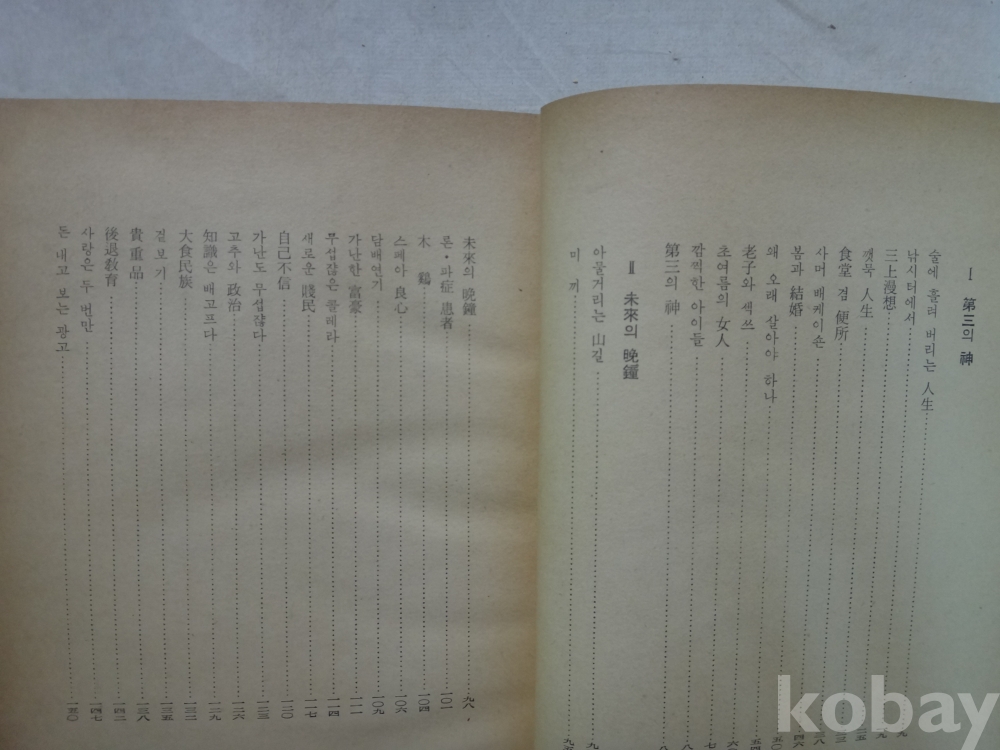 Ⅰ 第三의 神
술에 흘려 버리는 人生
낚시터에서
三上漫想
깻묵 人生
食堂 겸 便所
사며 배케이숀
봄과 結婚
왜 오래 살아야 하나
老子와 섹쓰
초여름의 女人
깜찍한 아이들
第三의 神
Ⅱ 未來의 晩鐘
아물거리는 山길
미끼
未來의 晩鐘 九八
론・파症 患者 一〇一
木 鷄 一〇四
스페아 良心 一〇六
담배연기 一〇九
가난한 富豪 一一一
무섭잖은 콜레라 一一四
새로운 賤民 一一七
自己不信 一二〇
가난도 무섭잖다 一二三
고추와 政治 一二六
知識은 배고프다 一二九
大食民族 一三二
겉보기 一三五
貴重品 一三八
後退敎育 一四二
사랑은 두 번만 一四七
돈 내고 보는 광고 一五〇
kobay